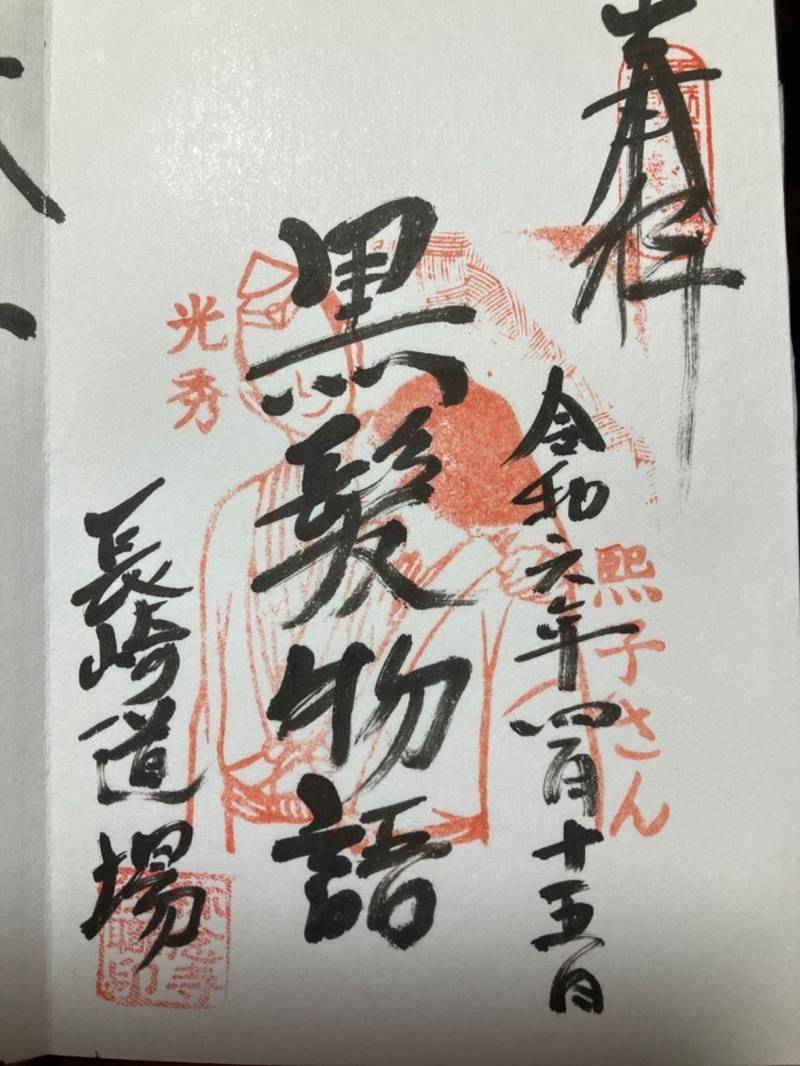 奉拝
令和六年四月十五日
熙子さん
黒髪物語
光秀
長崎道場